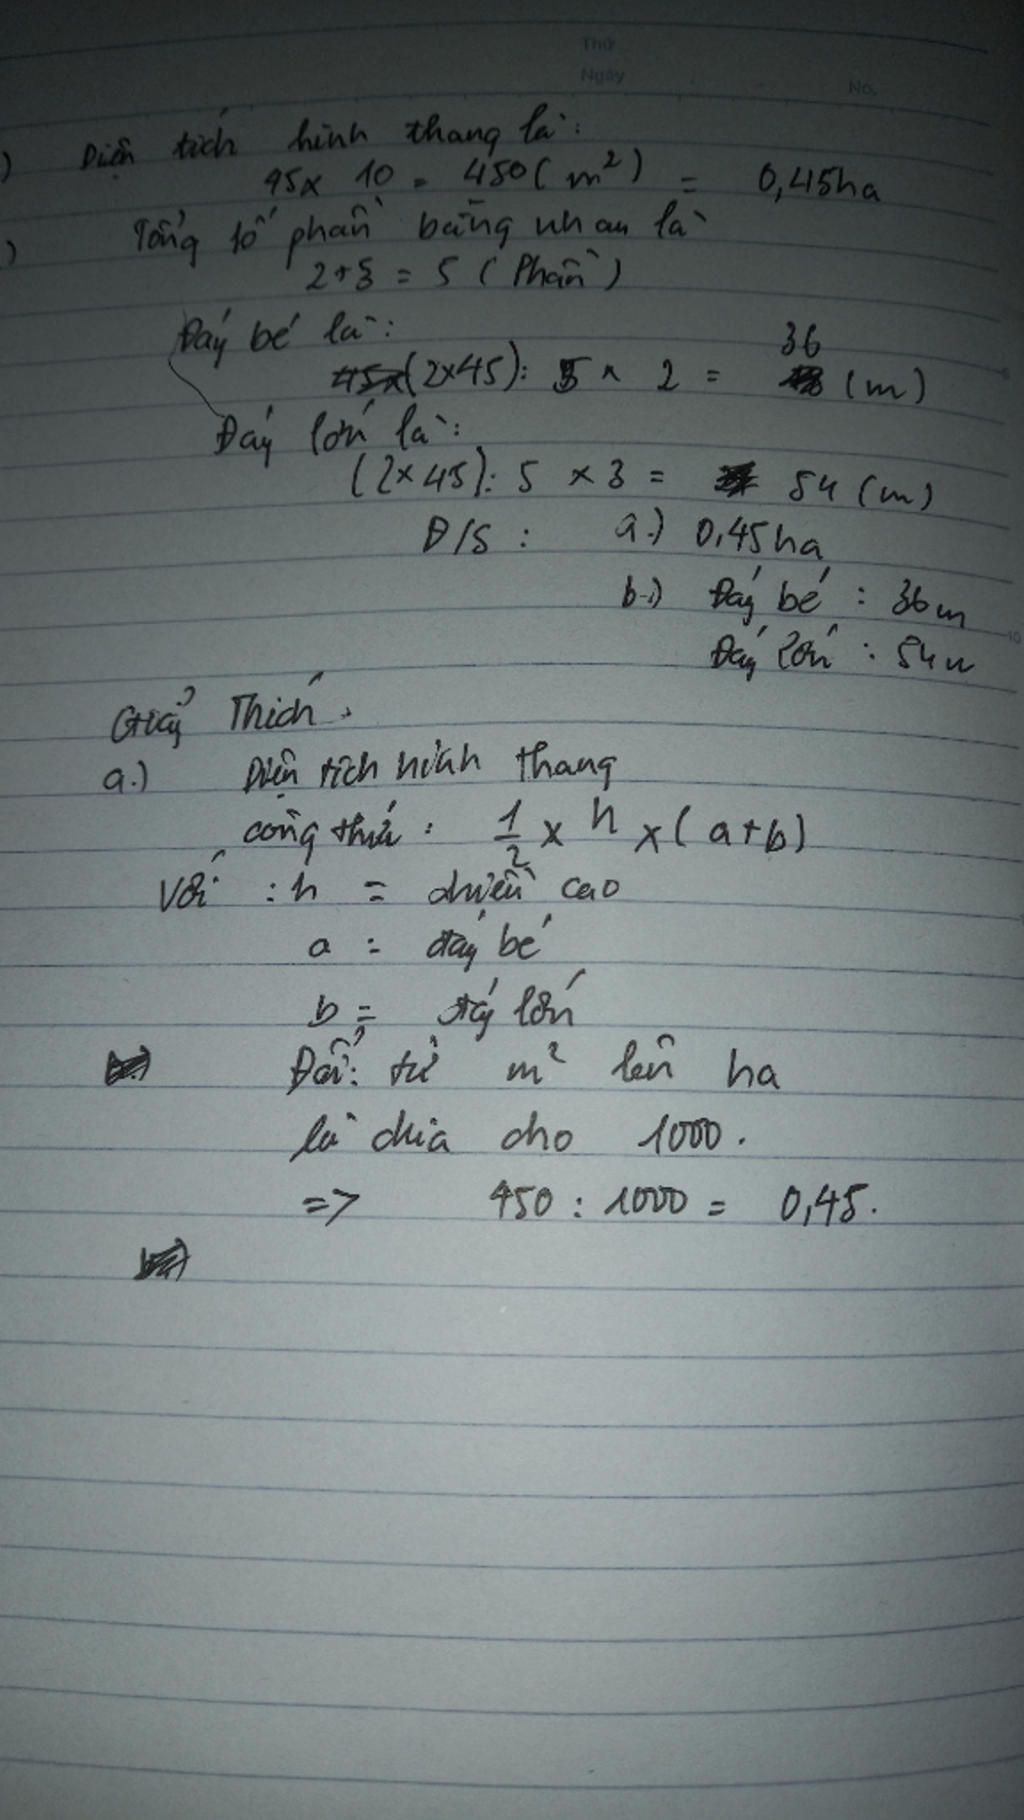 Thứ
Ngày
No.
) Diện tích hình thang là:
45x 10 = 450 ( m² ) = 0,45ha
) Tổng số phần bằng nhau là
2+3 = 5 ( Phần )
Đáy bé là:
(2x45): 5 x 2 = 36 (m)
Đáy lớn là:
(2x45): 5 x 3 = 54 (m)
Đ/S : a.) 0,45ha
b.) Đáy bé : 36m
Đáy lớn : 54m
Giải Thích.
a.) Diện tích hình thang
công thức : 1/2 x h x ( a+b )
Với : h = chiều cao
a = đáy bé
b = đáy lớn
Đổi: từ m² lên ha
là chia cho 1000.
=> 450 : 1000 = 0,45.